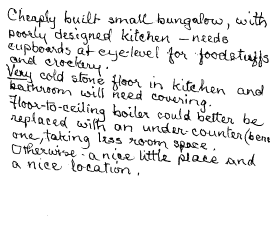 Cheaply built small bungalow, with
poorly designed kitchen – needs
cupboards at eye-level for foodstuffs
and crockery.
Very cold stone floor in kitchen and
bathroom will need covering.
Floor-to-ceiling boiler could better be
replaced with an under-counter (bene
one, taking less room space.
Otherwise – a nice little place and
a nice location.